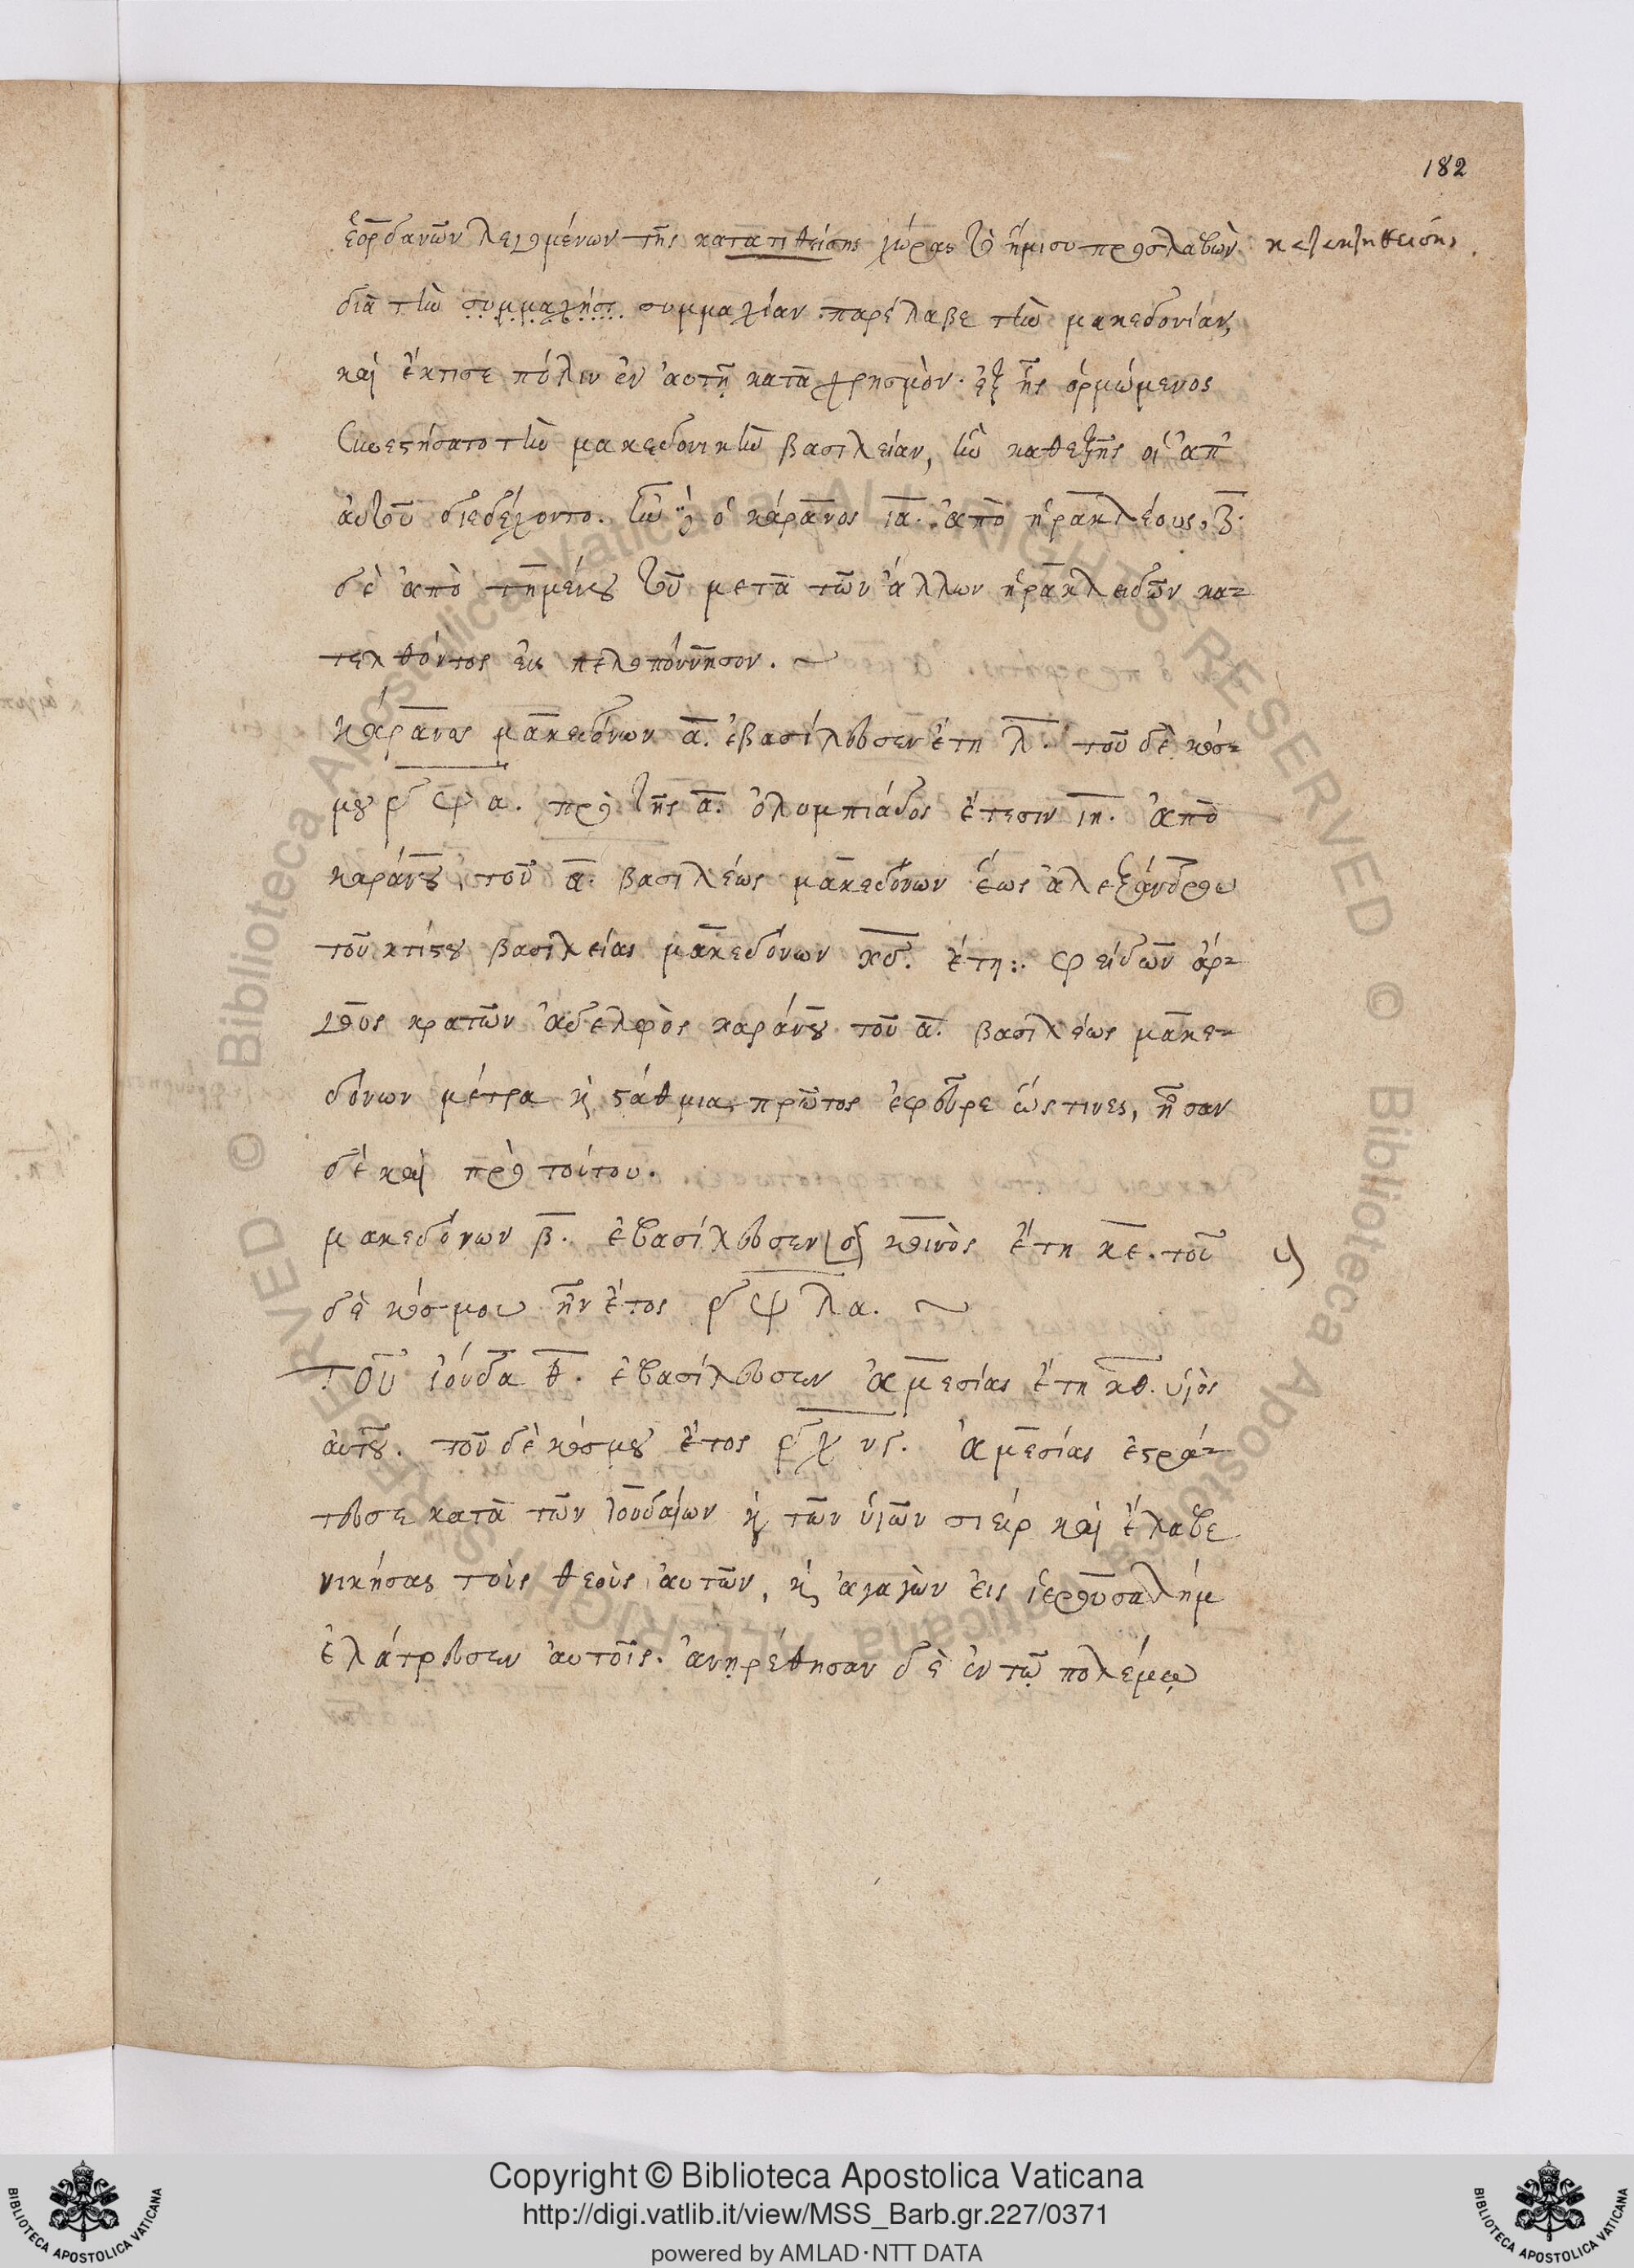 182
ἐορδανῶν λεγομένων τῆς κατατιθείσης χώρας τὸ ἥμισυ προσλαβὼν κατακτηθείσης
διὰ τὴν συμμαχήσι συμμαχίαν παρέλαβε τὴν μακεδονίαν,
καὶ ἔκτισε πόλιν ἐν αὐτῇ κατὰ χρησμὸν· ἐξ ἧς ὁρμώμενος
συνεστήσατο τὴν μακεδονικὴν βασιλείαν, ἣν καθεξῆς οἱ ἀπ'
αὐτοῦ διεδέχοντο. ἦν δὲ ὁ κάρανος ια. ἀπὸ ἡρακλέους, ζ.
δὲ ἀπὸ τημένου τοῦ μετὰ τῶν ἄλλων ἡρακλειδῶν κα-
τελθόντος εἰς πελοπόννησον.
κάρανος μακεδόνων α. ἐβασίλευσεν ἔτη λ. τοῦ δὲ κόσ-
μου ͵εψα. πρὸ τῆς α. ὀλυμπιάδος ἔτεσιν ιη. ἀπὸ
καράνου, τοῦ α. βασιλέως μακεδόνων ἕως ἀλεξάνδρου
τοῦ κτίστου βασιλείας μακεδόνων κδ. ἔτη: φείδων ἀρ-
γεῖος κρατῶν ἀδελφὸς καράνου τοῦ α. βασιλέως μακε-
δόνων μέτρα κὶ στάθμια πρῶτος ἐφεῦρε ὥς τινες, ἦσαν
δὲ καὶ πρὸ τούτου.
μακεδόνων β. ἐβασίλευσεν [ὁ] κοινὸς ἔτη κε. τοῦ
δὲ κόσμου ἦν ἔτος ͵εψλα.
τοῦ ἰούδα θ. ἐβασίλευσεν ἀμεσίας ἔτη κθ. υἱὸς
αὐτοῦ. τοῦ δὲ κόσμου ἔτος ͵εχνϛ. ἀμεσίας ἐστρά-
τευσε κατὰ τῶν ἰουδαίων κὶ τῶν υἱῶν σιεὶρ καὶ ἔλαβε
νικήσας τοὺς θεοὺς αὐτῶν, κὶ ἀγαγὼν εἰς ἱερουσαλήμ
ἐλάτρευσεν αὐτοῖς. ἀνῃρέθησαν δὲ ἐν τῷ πολέμῳ
Copyright © Biblioteca Apostolica Vaticana
http://digi.vatlib.it/view/MSS_Barb.gr.227/0371
powered by AMLAD·NTT DATA
BIBLIOTECA APOSTOLICA VATICANA
BIBLIOTECA APOSTOLICA VATICANA